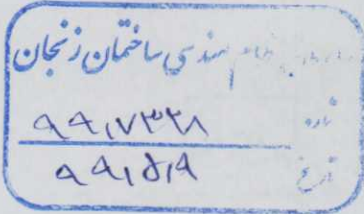 نظام مهندسی ساختمان زنجان
شماره ۹۹,۷۳۳۸
تاریخ ۹۹,۵,۹